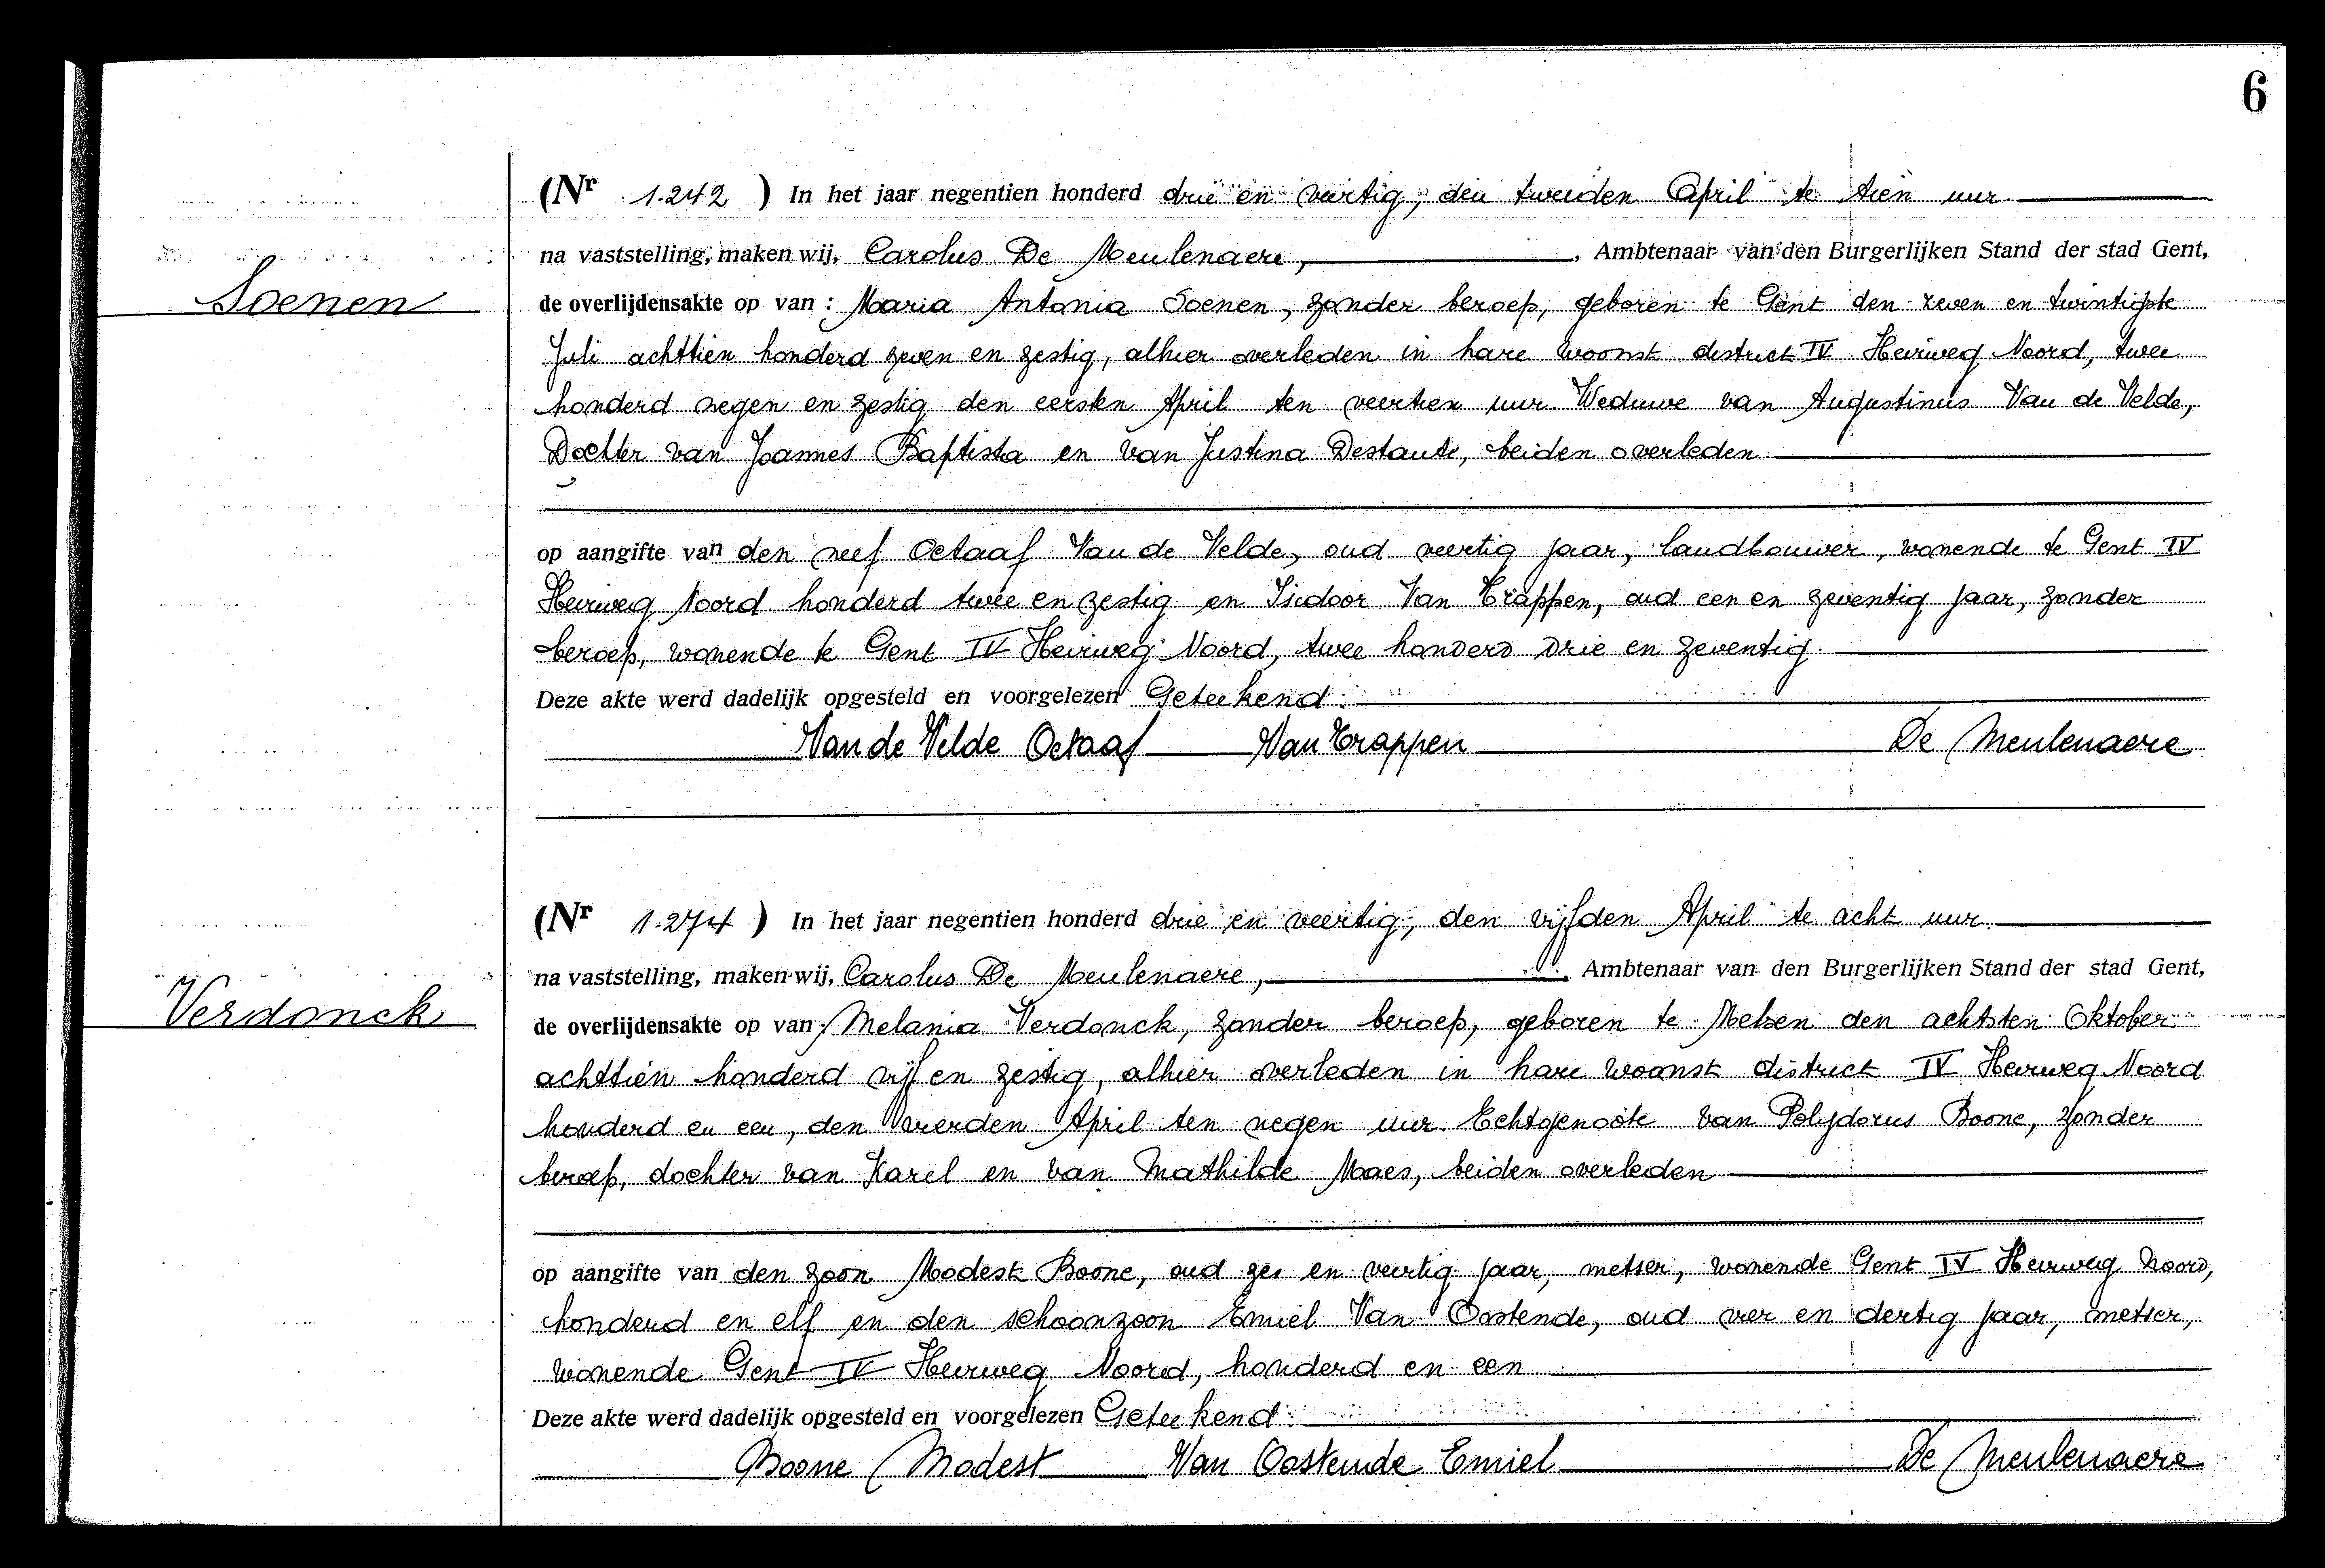 6
(Nr 1.242 ) In het jaar negentien honderd drie en veertig, den tweeden April te tien uur
na vaststelling, maken wij, Carolus De Meulenaere, , Ambtenaar van den Burgerlijken Stand der stad Gent,
Soenen
de overlijdensakte op van : Maria Antonia Soenen, zonder beroep, geboren te Gent den zeven en twintigste
Juli achttien honderd zeven en zestig, alhier overleden in hare woonst district IV Heirweg Noord, twee
honderd negen en zestig den eersten April ten veertien uur Weduwe van Augustinus Van de Velde,
Dochter van Joannes Baptista en van Justina Destaute, beiden overleden
op aangifte van den neef Octaaf Van de Velde, oud veertig jaar, landbouwer, wonende te Gent IV
Heirweg Noord honderd twee en zestig en Isidoor Van Trappen, oud een en zeventig jaar, zonder
beroep, wonende te Gent IV Heirweg Noord, twee honderd drie en zeventig.
Deze akte werd dadelijk opgesteld en voorgelezen Geteekend:
Van de Velde Octaaf Van Trappen De Meulenaere
(Nr 1.274 ) In het jaar negentien honderd drie en veertig, den vijfden April te acht uur
na vaststelling, maken wij, Carolus De Meulenaere, , Ambtenaar van den Burgerlijken Stand der stad Gent,
Verdonck
de overlijdensakte op van : Melania Verdonck, zonder beroep, geboren te Melsen den achtsten Oktober
achttien honderd vijf en zestig, alhier overleden in hare woonst district IV Heirweg Noord
honderd en een, den vierden April ten negen uur. Echtgenoote van Polydorus Boone, zonder
beroep, dochter van Karel en van Mathilde Maes, beiden overleden
op aangifte van den zoon Modest Boone, oud zes en veertig jaar, metser, wonende Gent IV Heirweg Noord,
honderd en elf en den schoonzoon Emiel Van Oostende, oud vier en dertig jaar, metser,
wonende Gent IV Heirweg Noord, honderd en een
Deze akte werd dadelijk opgesteld en voorgelezen Geteekend:
Boone Modest Van Oostende Emiel De Meulenaere